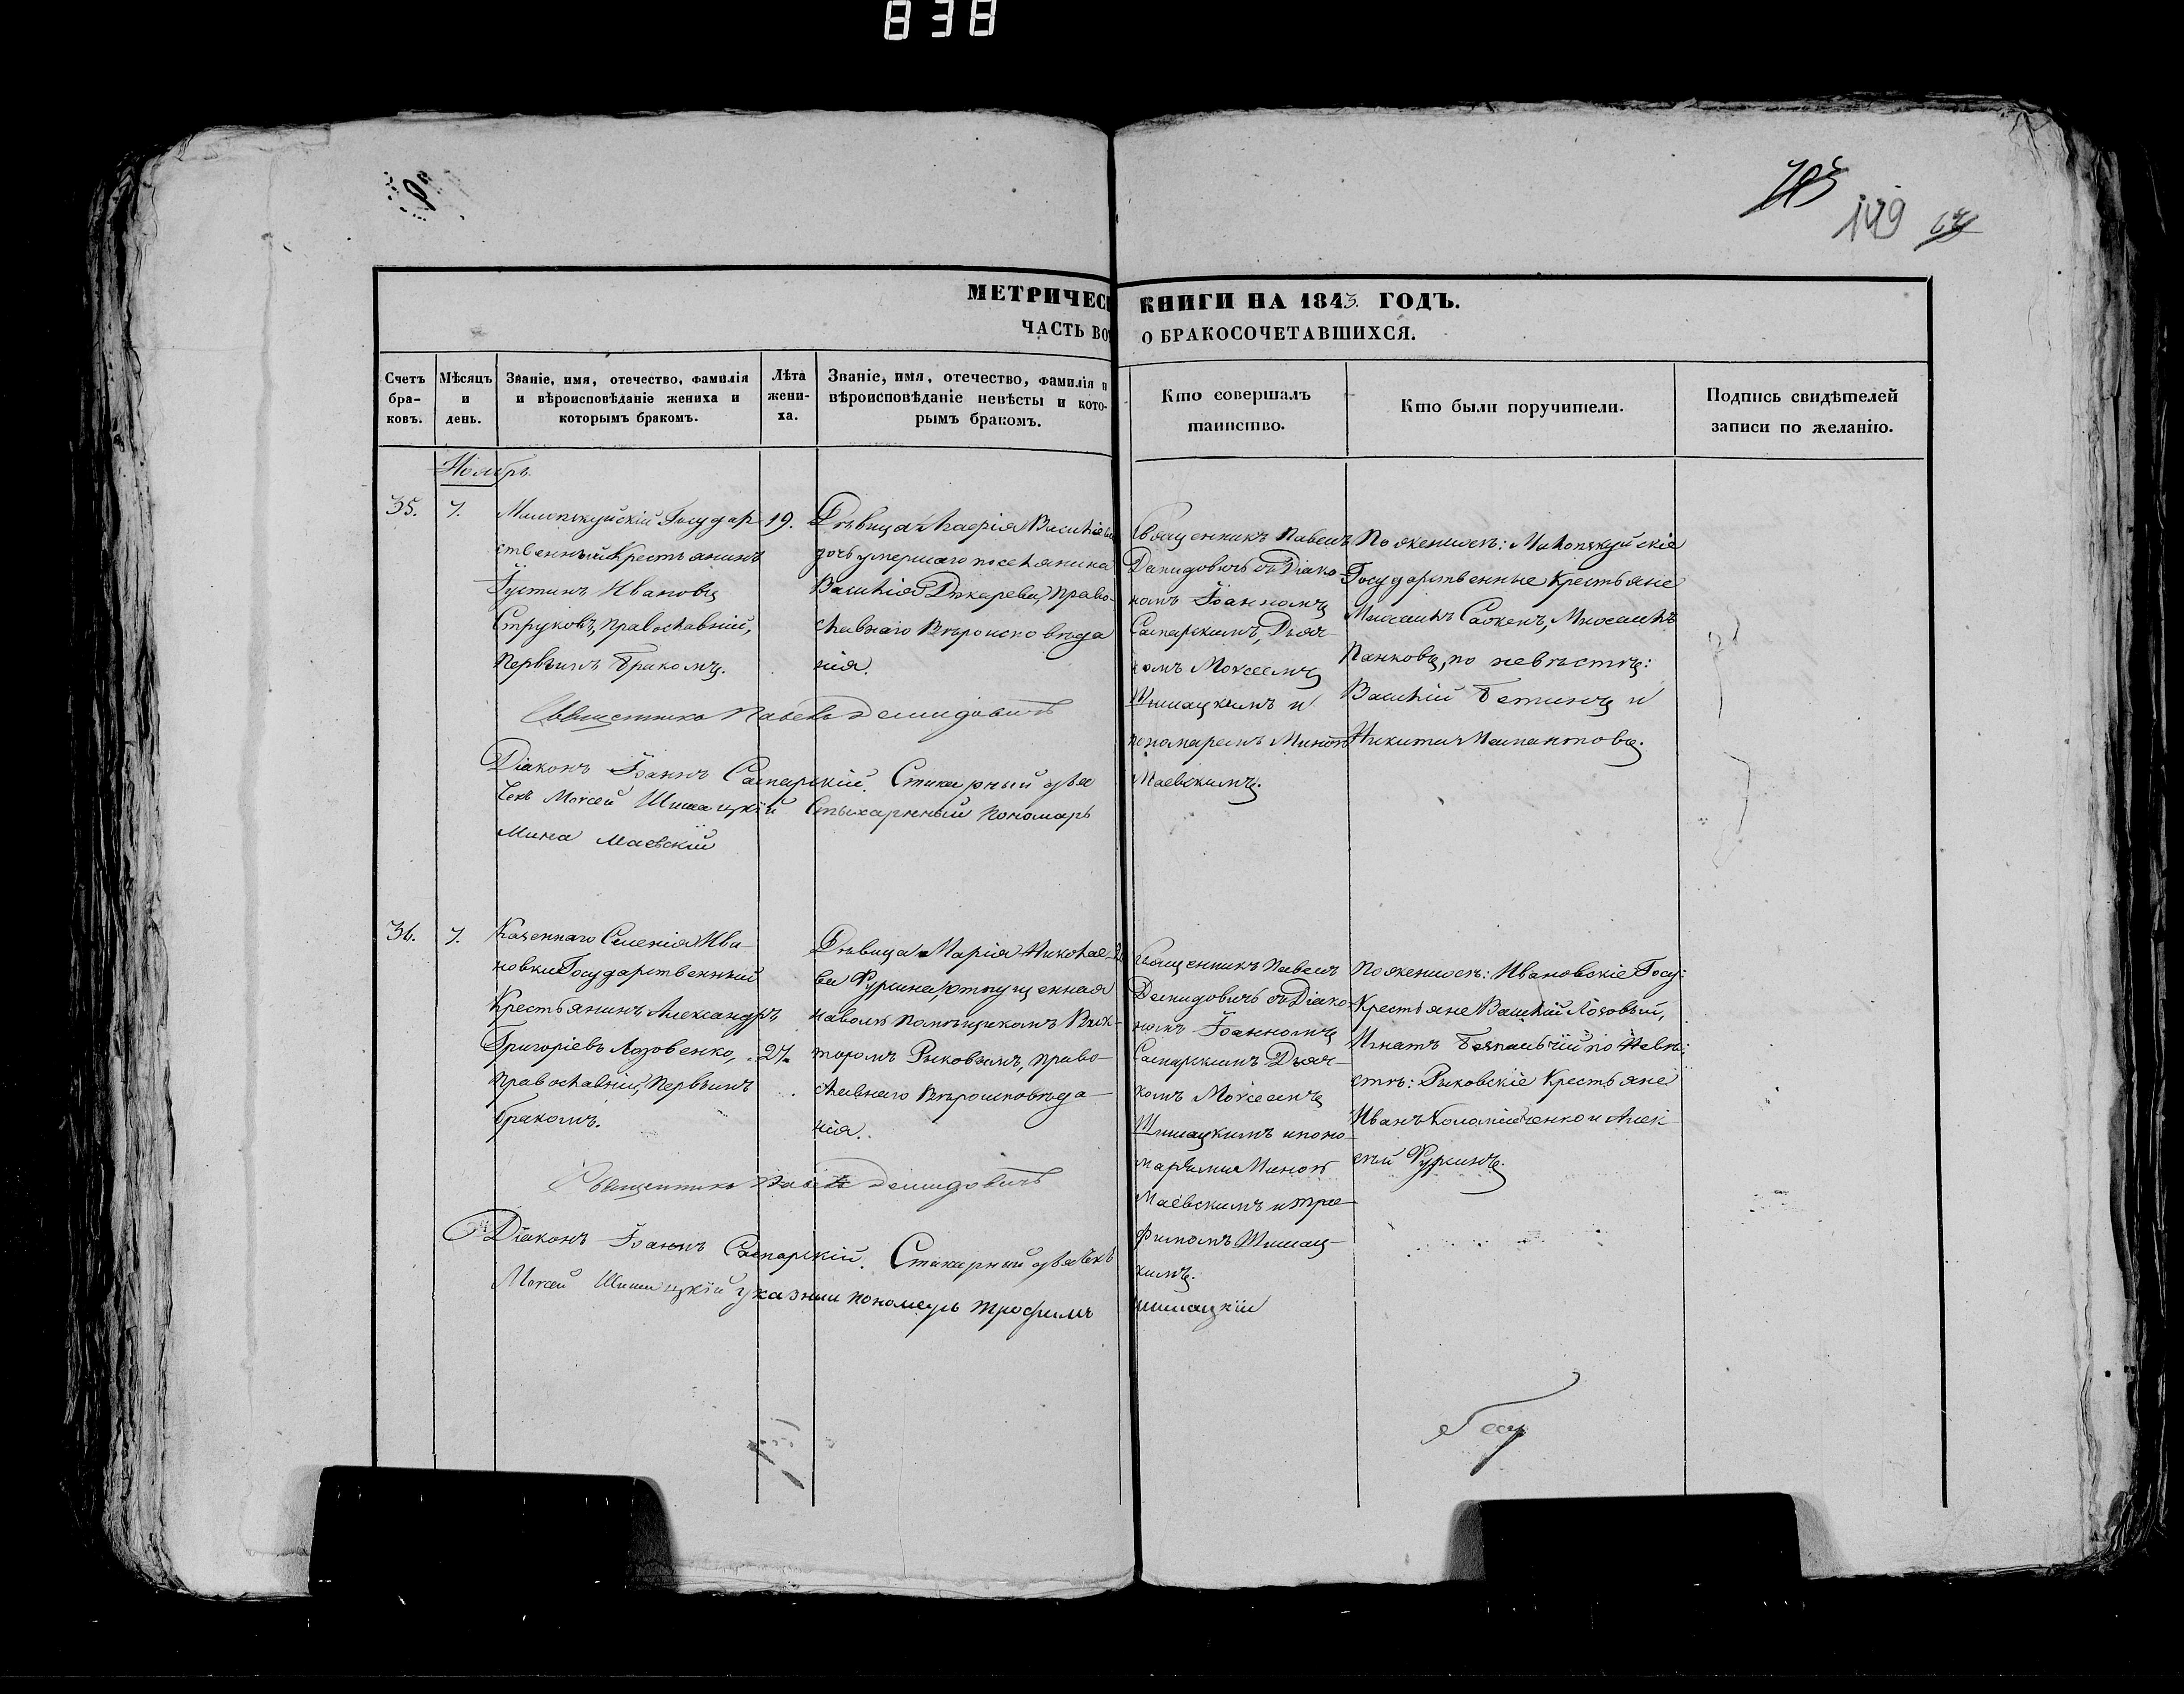 838
149
МЕТРИЧЕС
ЧАСТЬ ВО
КНИГИ НА 1843. ГОДЪ.
О БРАКОСОЧЕТАВШИХСЯ.
Счетъ бра-ковъ.
Мѣсяцъ и день.
Званіе, имя, отечество, фамилія
и вѣроисповѣданіе жениха и
которымъ бракомъ.
Лѣта жени-ха.
Званіе, имя, отечество, фамилія и
вѣроисповѣданіе невѣсты и кото-
рымъ бракомъ.
Кто совершалъ
таинство.
Кто были поручители.
Подпись свидѣтелей
записи по желанію.
Ноябрь.
35.
7.
Государ
ственный Крестьянинъ
Іустинъ Ивановъ
Струковъ, православній,
первымъ бракомъ.
19.
Дѣвица Василіева
дочь умершаго поселянина
Василія православнаго Вѣроисповѣда
нія.
Священникъ Павелъ
Демидовичь съ Діако
номъ Іоанномъ
Дьяч
комъ Моисеемъ
Шишацкимъ и
пономаремъ Миною
Маевскимъ.
По женихѣ:
Государственные Крестьяне
Михаилъ Михаилъ
Панковъ, по невѣстѣ:
Василій и
Никита
Священникъ Павелъ Демидовичъ
Діаконъ Іоаннъ Стихарный дья
чекъ Моисей Шишацкій Стыхарнный пономарь
Мина Маевскій
36.
7.
Казеннаго Селенія Ива-
новки Государственный
Крестьянинъ Александръ
Григоріевъ Лозовенко,
православній, первымъ
бракомъ.
27.
Дѣвица Марія Николае-
ва отпущенная
наволю помѣщикомъ Вик-
торомъ Рыковымъ, право-
славнаго Вѣроисповѣда-
нія.
Священникъ Павелъ
Демидовичь съ Діако-
номъ Іоанномъ
Дьяч-
комъ Моисеемъ
Шишацкимъ и поно-
марями Миною
Маевскимъ и Тро-
фимомъ Шишац-
кимъ.
По женихѣ: Ивановскіе Госу:
Крестьяне Василій Лозовый,
Игнатъ по Невѣ:
стѣ: Рыковскіе Крестьяне
Иванъ и Алек-
сѣй
Священникъ Павелъ Демидовичъ
Діаконъ Іоаннъ Стихарный дьячекъ
Моисей Шишацкій указный пономарь Трофимъ
Шишацкій